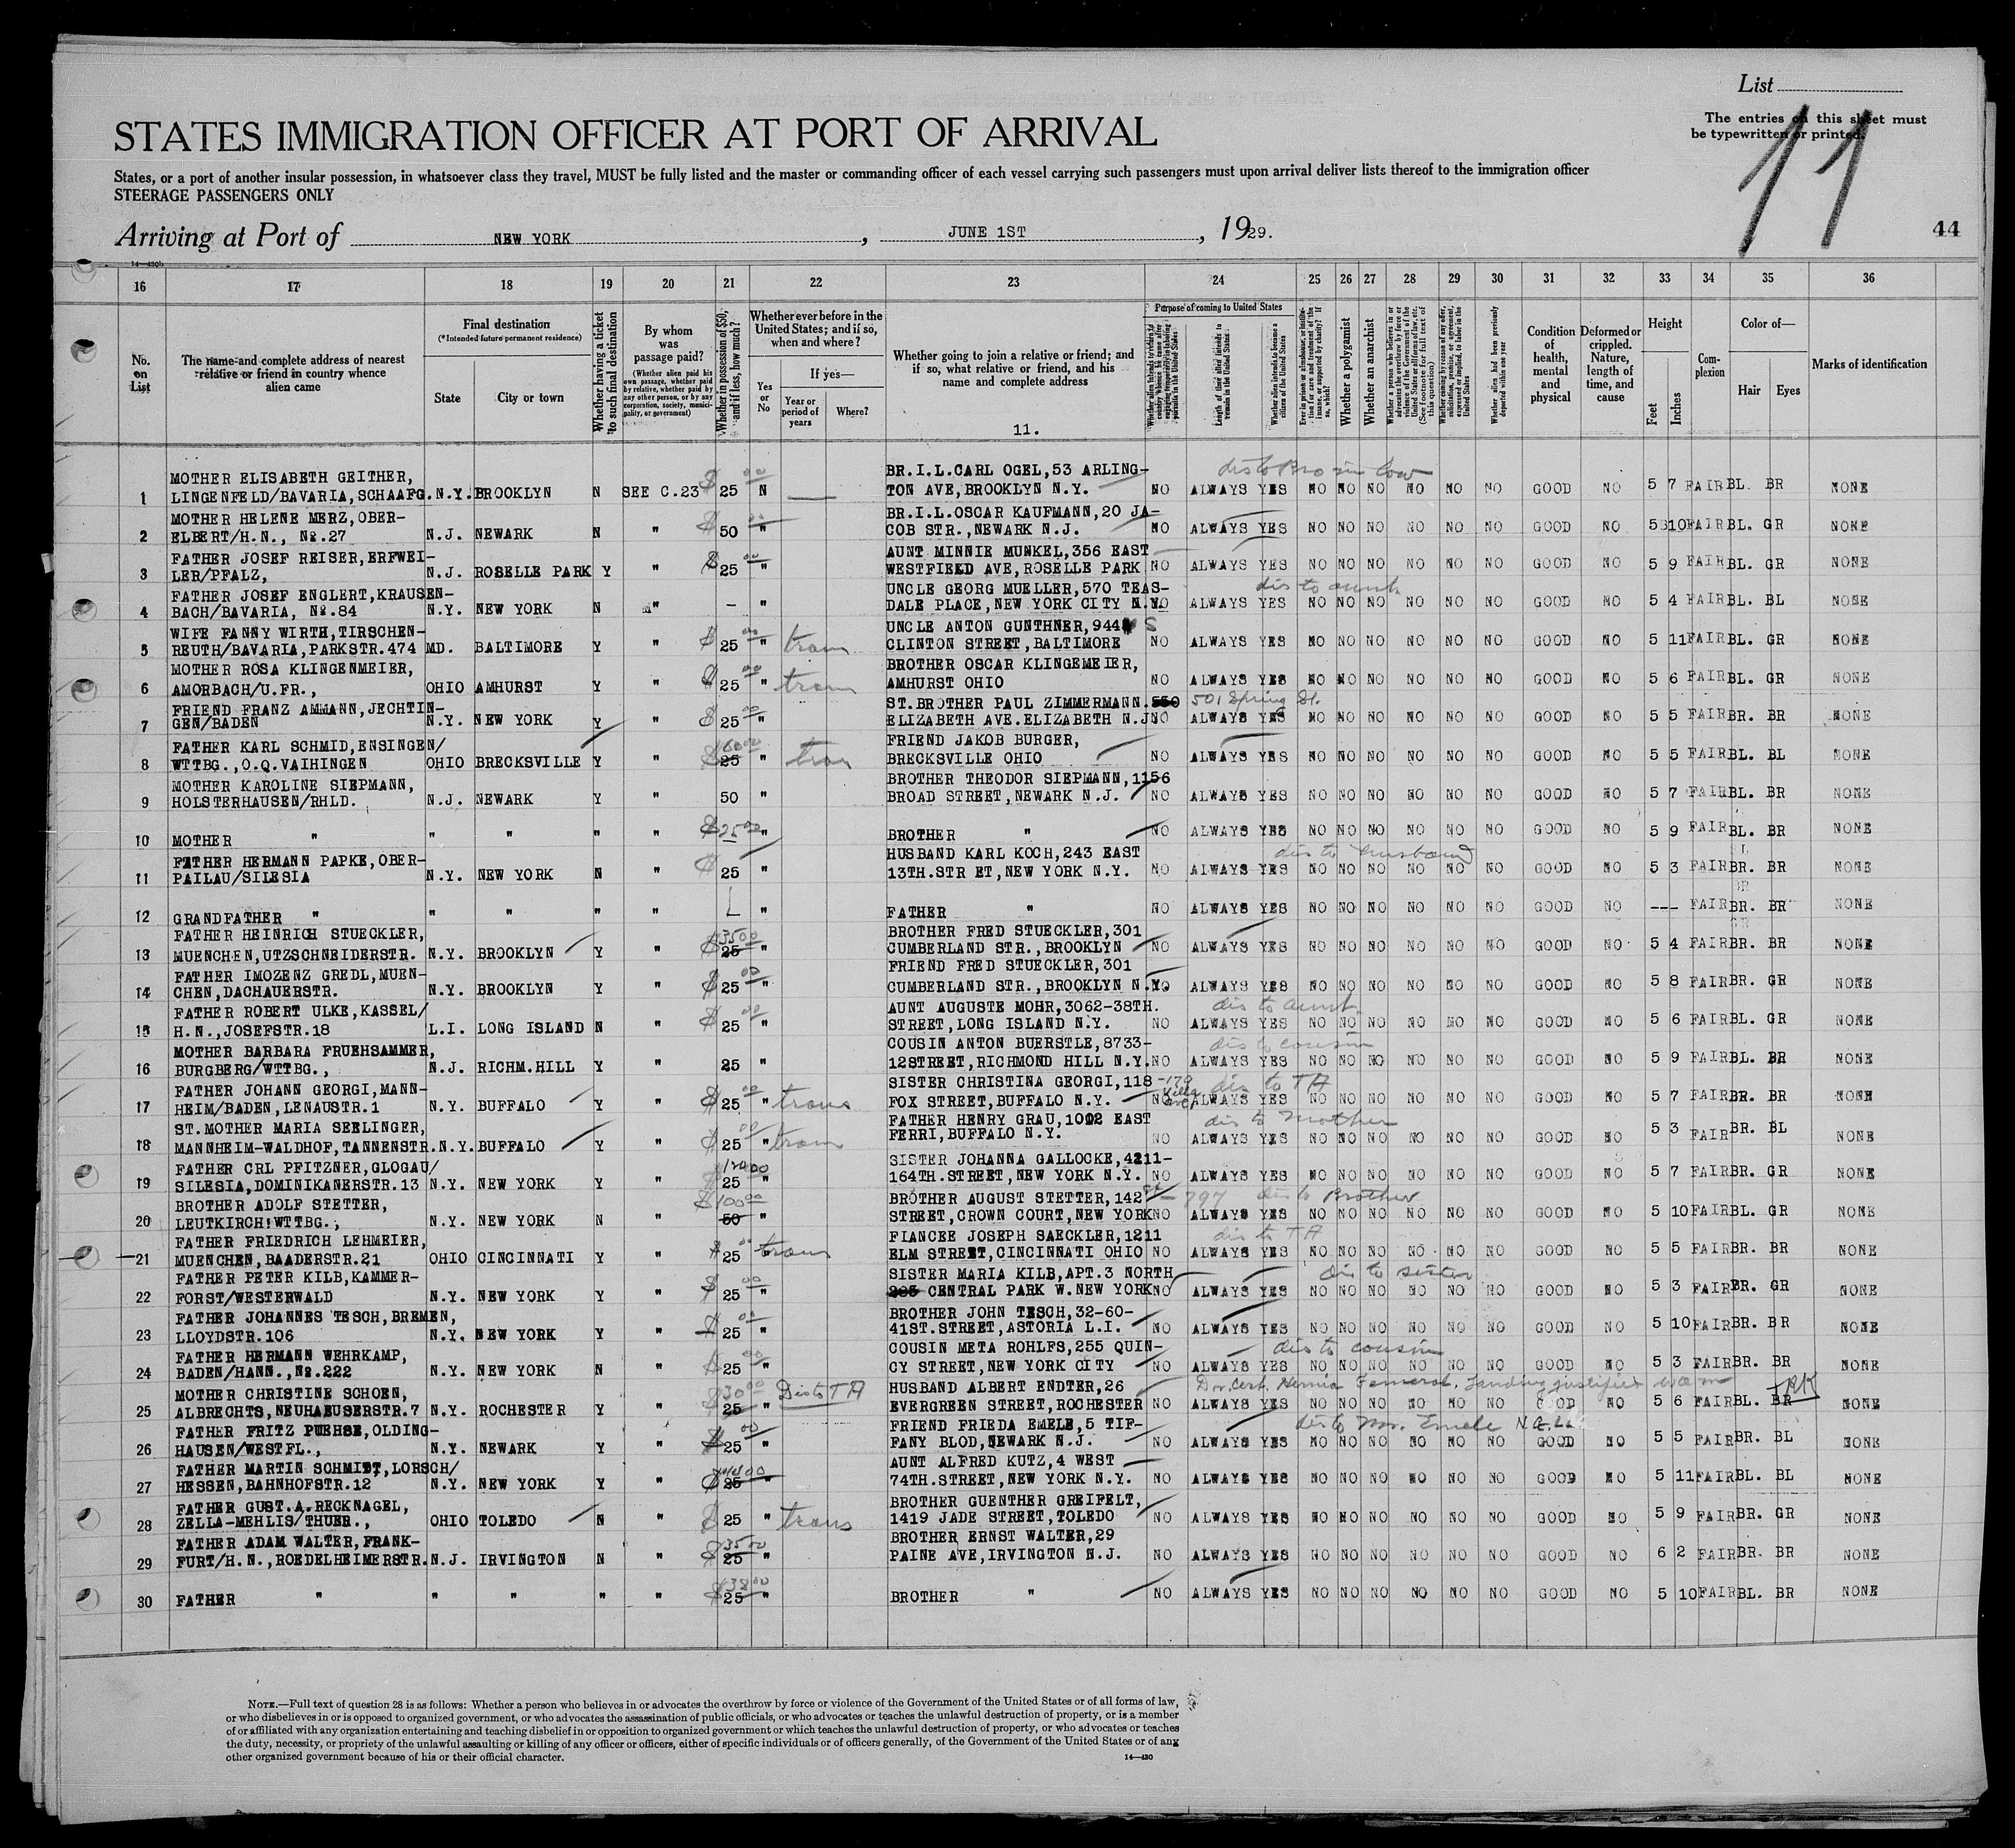 List
The entries on this sheet must
be typewritten or printed.
11
STATES IMMIGRATION OFFICER AT PORT OF ARRIVAL
States, or a port of another insular possession, in whatsoever class they travel, MUST be fully listed and the master or commanding officer of each vessel carrying such passengers must upon arrival deliver lists thereof to the immigration officer
STEERAGE PASSENGERS ONLY
Arriving at Port of NEW YORK, JUNE 1ST, 1929.
44
14—430b
16 17 18 19 20 21 22 23 24 25 26 27 28 29 30 31 32 33 34 35 36
No. on List
The name and complete address of nearest relative or friend in country whence alien came
Final destination
(*Intended future permanent residence)
State City or town
Whether having a ticket to such final destination
By whom was passage paid?
(Whether alien paid his own passage, whether paid by relative, whether paid by any other person, or by any corporation, society, municipality, or government)
Whether in possession of $50, and if less, how much?
Whether ever before in the United States; and if so, when and where?
Yes or No
If yes—
Year or period of years Where?
Whether going to join a relative or friend; and if so, what relative or friend, and his name and complete address
11.
Purpose of coming to United States
Length of time alien intends to remain in the United States
Whether alien intends to become a citizen of the United States
Whether a polygamist
Whether an anarchist
Whether alien had been previously deported within one year
Condition of health, mental and physical
Deformed or crippled. Nature, length of time, and cause
Height
Feet Inches
Complexion
Color of—
Hair Eyes
Marks of identification
dis to Bro in law
1 MOTHER ELISABETH GEITHER, LINGENFELD/BAVARIA, SCHAAFG. N.Y. BROOKLYN N SEE C.23 $25 00 N BR.I.L.CARL OGEL,53 ARLINGTON AVE,BROOKLYN N.Y. NO ALWAYS YES NO NO NO NO NO NO GOOD NO 5 7 FAIR BL. BR NONE
2 MOTHER HELENE MERZ, OBER-ELBERT/H.N., No.27 N.J. NEWARK N " $50 " BR.I.L.OSCAR KAUFMANN,20 JACOB STR.,NEWARK N.J. NO ALWAYS YES NO NO NO NO NO NO GOOD NO 5 10 FAIR BL. GR NONE
3 FATHER JOSEF REISER,ERFWEILER/PFALZ, N.J. ROSELLE PARK Y " $25 00 " AUNT MINNIE MUNKEL,356 EAST WESTFIELD AVE,ROSELLE PARK NO ALWAYS YES NO NO NO NO NO NO GOOD NO 5 9 FAIR BL. GR NONE
dis to aunt
4 FATHER JOSEF ENGLERT,KRAUSENBACH/BAVARIA, No.84 N.Y. NEW YORK N " - " UNCLE GEORG MUELLER,570 TEASDALE PLACE,NEW YORK CITY N.Y. NO ALWAYS YES NO NO NO NO NO NO GOOD NO 5 4 FAIR BL. BL NONE
5 WIFE FANNY WIRTH,TIRSCHENREUTH/BAVARIA,PARKSTR.474 MD. BALTIMORE Y " $25 00 " trans UNCLE ANTON GUNTHNER,944 S CLINTON STREET,BALTIMORE NO ALWAYS YES NO NO NO NO NO NO GOOD NO 5 11 FAIR BL. GR NONE
6 MOTHER ROSA KLINGENMEIER, AMORBACH/U.FR., OHIO AMHURST Y " $25 00 " trans BROTHER OSCAR KLINGEMEIER, AMHURST OHIO NO ALWAYS YES NO NO NO NO NO NO GOOD NO 5 6 FAIR BL. GR NONE
7 FRIEND FRANZ AMMANN,JECHTINGEN/BADEN N.Y. NEW YORK Y " $25 00 " ST.BROTHER PAUL ZIMMERMANN.550 501 Spring St. ELIZABETH AVE.ELIZABETH N.J. NO ALWAYS YES NO NO NO NO NO NO GOOD NO 5 5 FAIR BR. BR NONE
8 FATHER KARL SCHMID,ENSINGEN/WTTBG.,O.Q.VAIHINGEN OHIO BRECKSVILLE Y " $60 00 25 " tran FRIEND JAKOB BURGER, BRECKSVILLE OHIO NO ALWAYS YES NO NO NO NO NO NO GOOD NO 5 5 FAIR BL. BL NONE
9 MOTHER KAROLINE SIEPMANN, HOLSTERHAUSEN/RHLD. N.J. NEWARK Y " 50 " BROTHER THEODOR SIEPMANN,1156 BROAD STREET,NEWARK N.J. NO ALWAYS YES NO NO NO NO NO NO GOOD NO 5 7 FAIR BL. BR NONE
10 MOTHER " " " " " $25 00 " BROTHER " NO ALWAYS YES NO NO NO NO NO NO GOOD NO 5 9 FAIR BL. BR NONE
dis to husband
11 FATHER HERMANN PAPKE,OBER-PAILAU/SILESIA N.Y. NEW YORK N " $25 " HUSBAND KARL KOCH,243 EAST 13TH.STR ET,NEW YORK N.Y. NO ALWAYS YES NO NO NO NO NO NO GOOD NO 5 3 FAIR BR. BR NONE
12 GRANDFATHER " " " " " " FATHER " NO ALWAYS YES NO NO NO NO NO NO GOOD NO --- FAIR BR. BR NONE
13 FATHER HEINRICH STUECKLER, MUENCHEN,UTZSCHNEIDERSTR. N.Y. BROOKLYN Y " $35 00 25 " BROTHER FRED STUECKLER,301 CUMBERLAND STR.,BROOKLYN NO ALWAYS YES NO NO NO NO NO NO GOOD NO 5 4 FAIR BR. BR NONE
14 FATHER IMOZENZ GREDL,MUENCHEN,DACHAUERSTR. N.Y. BROOKLYN Y " $25 00 " FRIEND FRED STUECKLER,301 CUMBERLAND STR.,BROOKLYN N.Y. NO ALWAYS YES NO NO NO NO NO NO GOOD NO 5 8 FAIR BR. GR NONE
dis to aunt.
15 FATHER ROBERT ULKE,KASSEL/H.N.,JOSEFSTR.18 L.I. LONG ISLAND N " $25 00 " AUNT AUGUSTE MOHR,3062-38TH. STREET,LONG ISLAND N.Y. NO ALWAYS YES NO NO NO NO NO NO GOOD NO 5 6 FAIR BL. GR NONE
dis to cousin
16 MOTHER BARBARA FRUEHSAMMER, BURGBERG/WTTBG., N.J. RICHM.HILL Y " 25 " COUSIN ANTON BUERSTLE,8733-12STREET,RICHMOND HILL N.Y. NO ALWAYS YES NO NO NO NO NO NO GOOD NO 5 9 FAIR BL. BR NONE
dis to TA
17 FATHER JOHANN GEORGI,MANNHEIM/BADEN,LENAUSTR.1 N.Y. BUFFALO Y " $25 00 " trans SISTER CHRISTINA GEORGI,118 FOX STREET,BUFFALO N.Y. NO ALWAYS YES NO NO NO NO NO NO GOOD NO 5 7 FAIR BR. BR NONE
dis to mother
18 ST.MOTHER MARIA SEELINGER, MANNHEIM-WALDHOF,TANNENSTR. N.Y. BUFFALO Y " $25 00 " trans FATHER HENRY GRAU,1002 EAST FERRI,BUFFALO N.Y. NO ALWAYS YES NO NO NO NO NO NO GOOD NO 5 3 FAIR BR. BL NONE
19 FATHER CRL PFITZNER,GLOGAU/SILESIA,DOMINIKANERSTR.13 N.Y. NEW YORK Y " $120 00 25 " SISTER JOHANNA GALLOCKE,4211-164TH.STREET,NEW YORK N.Y. NO ALWAYS YES NO NO NO NO NO NO GOOD NO 5 7 FAIR BR. GR NONE
797 dis to Brother
20 BROTHER ADOLF STETTER, LEUTKIRCH!WTTBG., N.Y. NEW YORK N " $100 00 50 " BROTHER AUGUST STETTER,142 STREET,CROWN COURT,NEW YORK NO ALWAYS YES NO NO NO NO NO NO GOOD NO 5 10 FAIR BL. GR NONE
dis to TA
21 FATHER FRIEDRICH LEHMEIER, MUENCHEN,BAADERSTR.21 OHIO CINCINNATI Y " $25 " trans FIANCEE JOSEPH SAECKLER,1211 ELM STREET,CINCINNATI OHIO NO ALWAYS YES NO NO NO NO NO NO GOOD NO 5 5 FAIR BR. BR NONE
dis to sister
22 FATHER PETER KILB,KAMMERFORST/WESTERWALD N.Y. NEW YORK Y " $25 00 " SISTER MARIA KILB,APT.3 NORTH CENTRAL PARK W.NEW YORK NO ALWAYS YES NO NO NO NO NO NO GOOD NO 5 3 FAIR BR. GR NONE
23 FATHER JOHANNES TESCH,BREMEN, LLOYDSTR.106 N.Y. NEW YORK Y " $25 00 " BROTHER JOHN TESCH,32-60-41ST.STREET,ASTORIA L.I. NO ALWAYS YES NO NO NO NO NO NO GOOD NO 5 10 FAIR BR. BR NONE
dis to cousin
24 FATHER HERMANN WEHRKAMP, BADEN/HANN.,No.222 N.Y. NEW YORK N " $25 00 " COUSIN META ROHLFS,255 QUINCY STREET,NEW YORK CITY NO ALWAYS YES NO NO NO NO NO NO GOOD NO 5 3 FAIR BR. BR NONE
Dr. Cert. Hernia Femoral. Landing justified
25 MOTHER CHRISTINE SCHOEN, ALBRECHTS,NEUHAEUSERSTR.7 N.Y. ROCHESTER Y " $30 00 25 " Dis to TA HUSBAND ALBERT ENDTER,26 EVERGREEN STREET,ROCHESTER NO ALWAYS YES NO NO NO NO NO NO GOOD NO 5 6 FAIR BL. BR NONE
dis to Mr. Emele
26 FATHER FRITZ PUEHSE,OLDINGHAUSEN/WESTFL., N.Y. NEWARK Y " $25 00 " FRIEND FRIEDA EMELE,5 TIFFANY BLOD,NEWARK N.J. NO ALWAYS YES NO NO NO NO NO NO GOOD NO 5 5 FAIR BR. BL NONE
27 FATHER MARTIN SCHMIDT,LORSCH/HESSEN,BAHNHOFSTR.12 N.Y. NEW YORK Y " 25 " AUNT ALFRED KUTZ,4 WEST 74TH.STREET,NEW YORK N.Y. NO ALWAYS YES NO NO NO NO NO NO GOOD NO 5 11 FAIR BL. BL NONE
28 FATHER GUST.A.RECKNAGEL, ZELLA-MEHLIS/THUER., OHIO TOLEDO N " $25 " trans BROTHER GUENTHER GREIFELT, 1419 JADE STREET,TOLEDO NO ALWAYS YES NO NO NO NO NO NO GOOD NO 5 9 FAIR BR. GR NONE
29 FATHER ADAM WALTER,FRANKFURT/H.N.,ROEDELHEIMERSTR. N.J. IRVINGTON N " $35 00 25 " BROTHER ERNST WALTER,29 PAINE AVE,IRVINGTON N.J. NO ALWAYS YES NO NO NO NO NO NO GOOD NO 6 2 FAIR BR. BR NONE
30 FATHER " " " " " $38 00 25 " BROTHER " NO ALWAYS YES NO NO NO NO NO NO GOOD NO 5 10 FAIR BL. BR NONE
NOTE.—Full text of question 28 is as follows: Whether a person who believes in or advocates the overthrow by force or violence of the Government of the United States or of all forms of law,
or who disbelieves in or is opposed to organized government, or who advocates the assassination of public officials, or who advocates or teaches the unlawful destruction of property, or is a member
of or affiliated with any organization entertaining and teaching disbelief in or opposition to organized government or which teaches the unlawful destruction of property, or who advocates or teaches
the duty, necessity, or propriety of the unlawful assaulting or killing of any officer or officers, either of specific individuals or of officers generally, of the Government of the United States or of any
other organized government because of his or their official character.
14—430